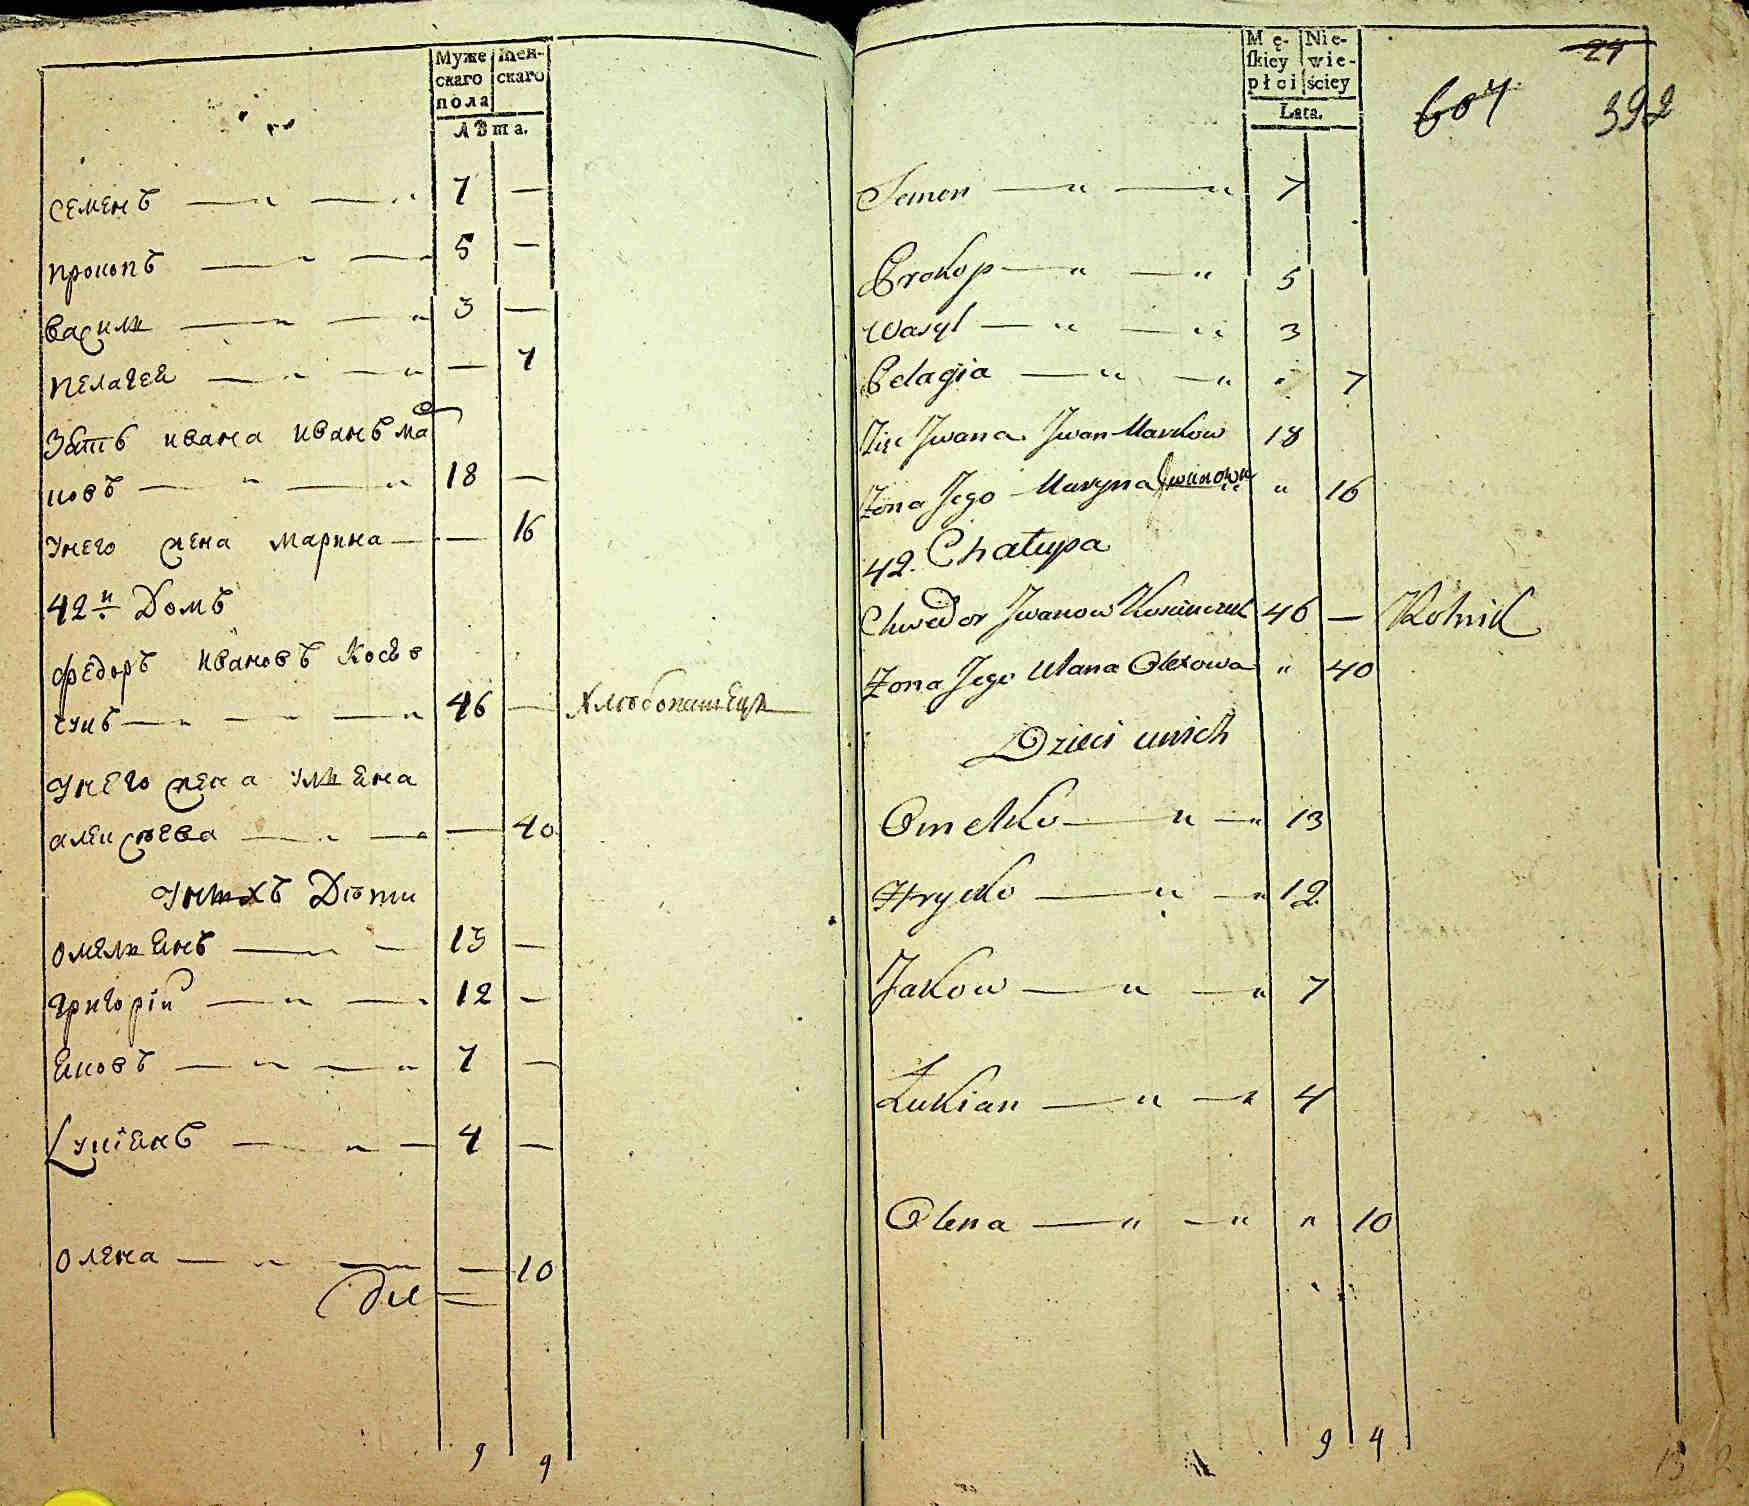 Муже
скаго
пола
Жен-
скаго
Лѣта.
Семенъ — „ — „ 7 —
Прокопъ — „ — „ 5 —
Василь — „ — „ 3 —
Пелагея — „ — „ — 7
Зять Ивана Иванъ Ма
ковъ — „ — „ 18 —
Унего жена Марина — — 16
42й Домъ
Федоръ Ивановъ Косѣв
чукъ — „ — — „ 46 — Хлѣбопашецъ
Унего жена Ульяна
Алексѣева — „ — „ — 40
Унихъ Дѣти
Омельянъ — „ — 13 —
Григорій — „ — „ 12 —
Яковъ — „ — „ 7 —
Лукіянъ — „ — 4 —
Олена — „ — — 10
9 9
Mę-
skiey
płci
Nie-
wie-
ściey
Lata.
24
604 392
Semen — „ — „ 7
Prokop — „ — „ 5
Wasyl — „ — „ 3
Pelagia — „ — „ „ 7
Zięć Jwana Jwan Markow 18
Żona Jego Maryna Jwanowa „ 16
42. Chałupa
Chwedor Jwanow 46 — Rolnik
Żona Jego Ulana Olexowa „ 40
Dzieci unich
Omelko — „ — „ 13
Hryćko — „ — „ 12
Jakow — „ — „ 7
Łukian — „ — „ 4
Olena — „ — „ „ 10
9 4